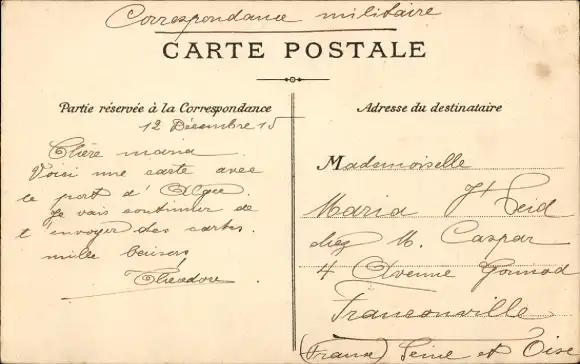 Correspondance militaire
CARTE POSTALE
Partie réservée à la Correspondance
12 Décembre 15
Chère mana
Voici une carte avec
le port d'
Je vais continuer de
t'envoyer des cartes.
mille beisers
Theodore
Adresse du destinataire
Mademoiselle
Maria
chez M. Caspar
4 Avenue Gounod
Franconville
(France) Seine et Oise